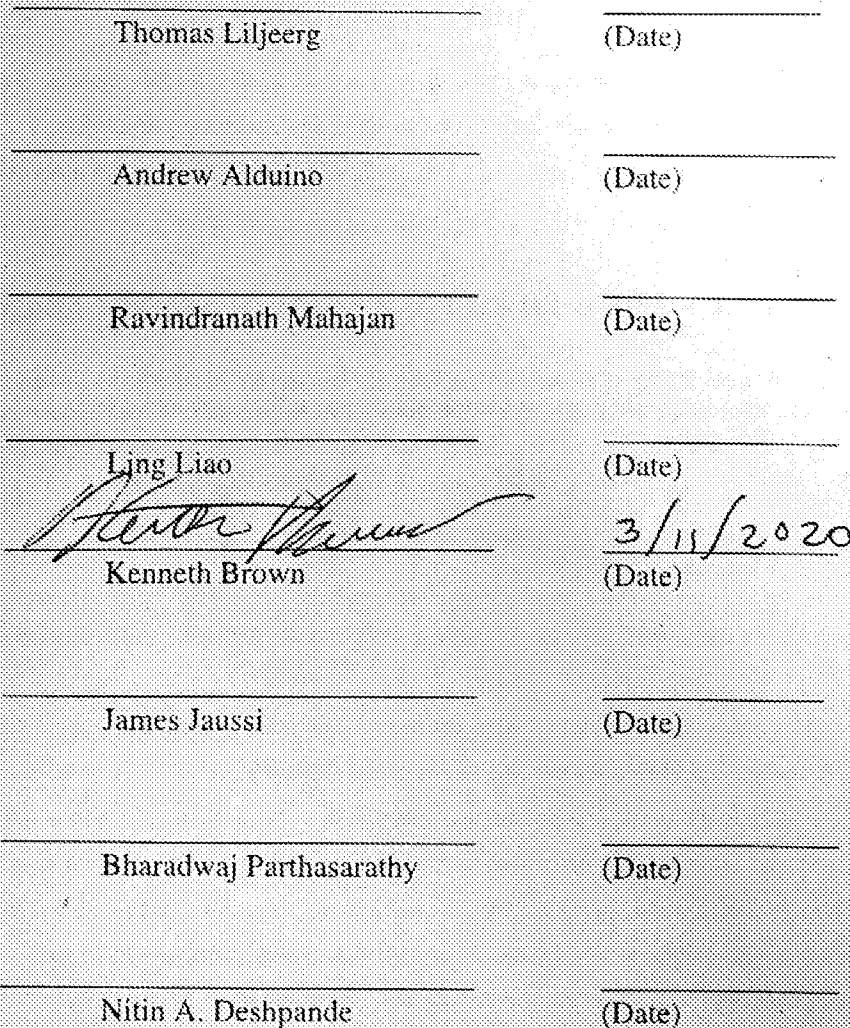 Thomas Liljeerg (Date)
Andrew Alduino (Date)
Ravindranath Mahajan (Date)
Ling Liao (Date)
3/11/2020
Kenneth Brown (Date)
James Jaussi (Date)
Bharadwaj Parthasarathy (Date)
Nitin A. Deshpande (Date)